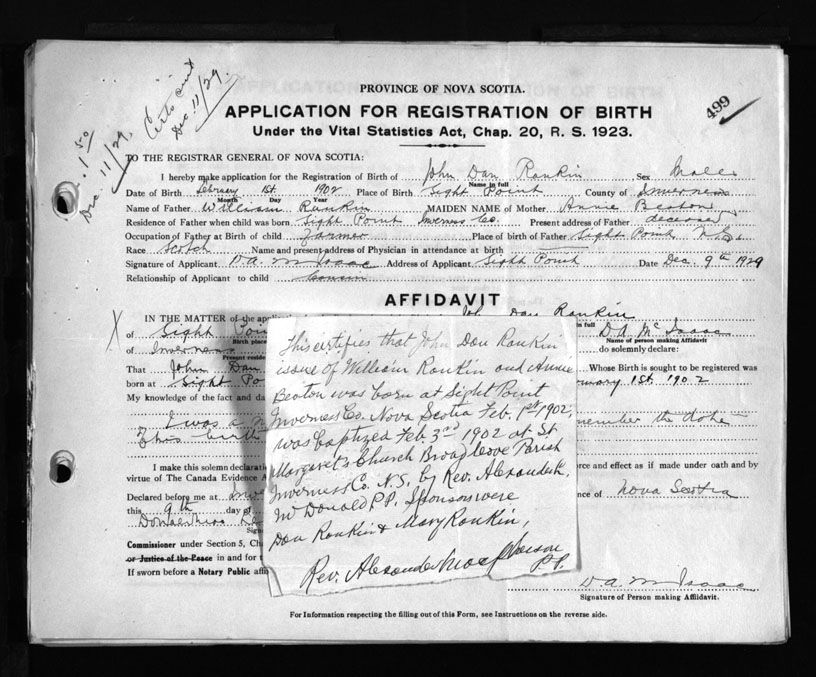 PROVINCE OF NOVA SCOTIA.
499
APPLICATION FOR REGISTRATION OF BIRTH
Under the Vital Statistics Act, Chap. 20, R. S. 1923.
Dec 11/29
1 50
Dec 11/29.
TO THE REGISTRAR GENERAL OF NOVA SCOTIA:
I hereby make application for the Registration of Birth of John Dan Rankin Sex Male
Name in full
Date of Birth February 1st 1902 Place of Birth Sight Point County of Inverness
Month Day Year
Name of Father William Rankin MAIDEN NAME of Mother Annie Beaton
Residence of Father when child was born Sight Point Inverness Co. Present address of Father deceased
Occupation of Father at Birth of child Farmer Place of Birth of Father Sight Point N.S.
Race Scotch Name and present address of Physician in attendance at birth
Signature of Applicant D. A. McIsaac Address of Applicant Sight Point Date Dec. 9th 1929
Relationship of Applicant to child Cousin
AFFIDAVIT
X
IN THE MATTER of the applica John Dan Rankin
in full
of Sight Poin D. A. McIsaac
Birth place Name of Person making Affidavit
of Inverness do solemnly declare:
Present resid
That John Dan Whose Birth is sought to be registered was
born at Sight Po ruary 1st 1902
My knowledge of the fact and da
I was a n member the date
of his birth
I make this solemn declaratio rce and effect as if made under oath and by
virtue of The Canada Evidence A
Declared before me at Inve nce of Nova Scotia
this 9th day of
Sign
Commissioner under Section 5, Cha
or Justice of the Peace in and for t
If sworn before a Notary Public affi
This certifies that John Dan Rankin
issue of William Rankin and Annie
Beaton was born at Sight Point
Inverness Co. Nova Scotia Feb. 1st 1902,
was baptized Feb. 3rd 1902 at St
Margaret's Church Broad Cove Parish
Inverness Co. N.S. by Rev. Alexander
McDonald P.P. Sponsors were
Dan Rankin & Mary Rankin,
Rev. Alexander
P.P.
D. A. McIsaac
Signature of Person making Affidavit.
For Information respecting the filling out of this Form, see Instructions on the reverse side.